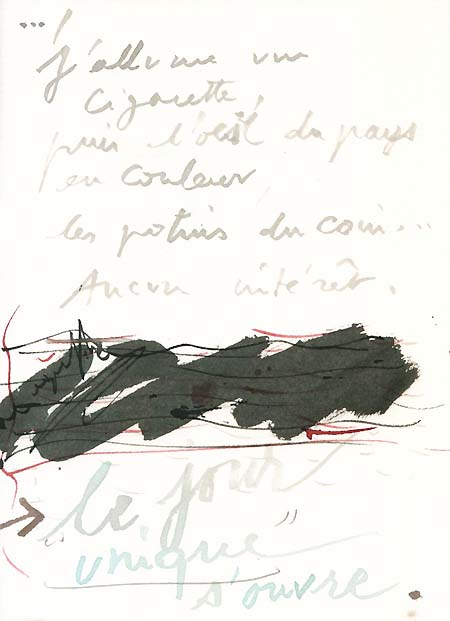 ...
J'allume une
cigarette,
puis l'œil du pays
en couleur,
les potins du coin...
Aucun intérêt.
le jour
"unique"
s'ouvre.